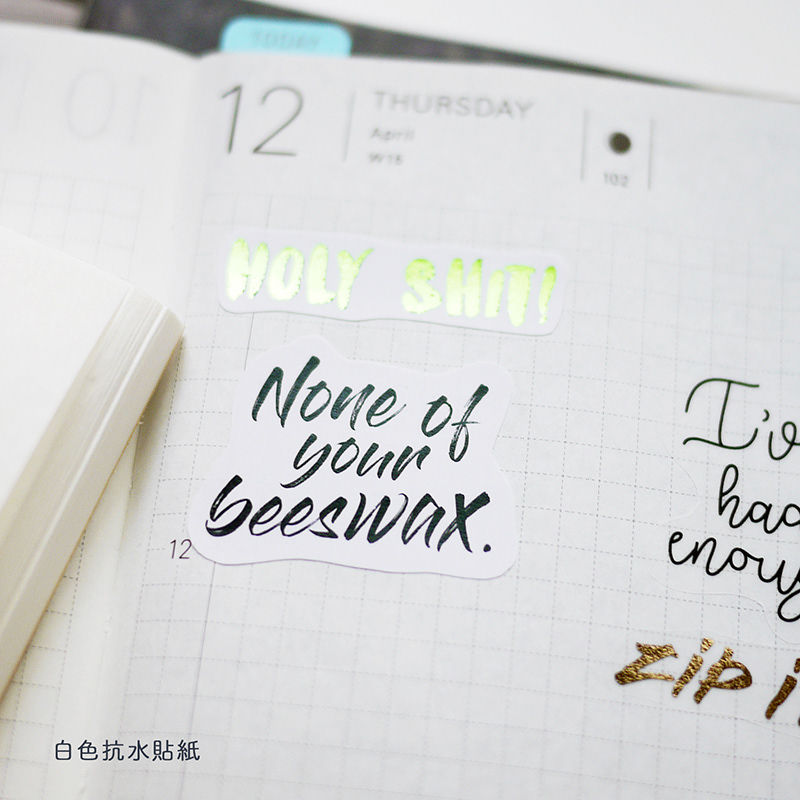 TODAY
12
THURSDAY
April
W15
102
HOLY SHIT!
None of
your
beeswax.
12
I've
had
enough
ZIP
白色抗水貼紙